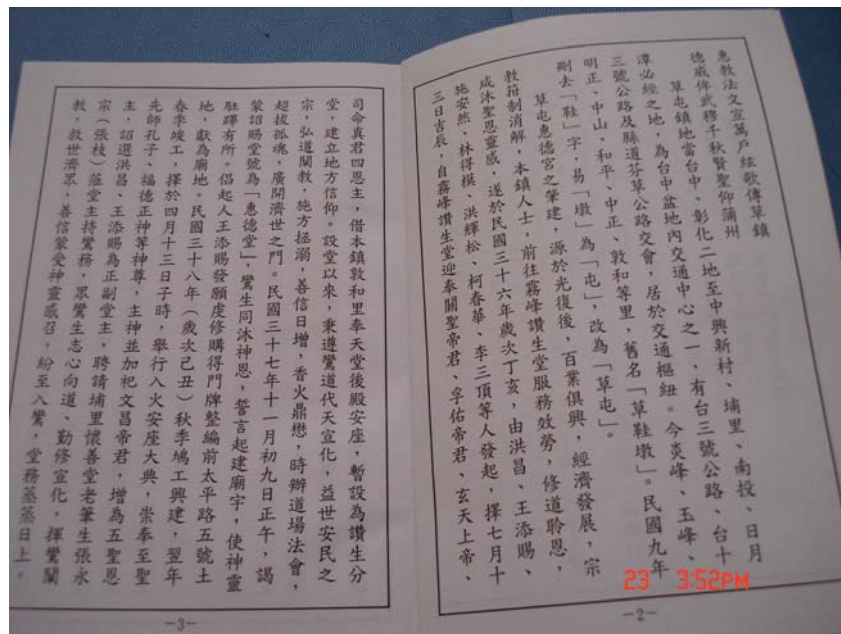 惠教法文宣萬戶絃歌傳草鎮
德威侔武穆千秋賢聖仰蒲州
草屯鎮地當台中、彰化二地至中興新村、埔里、南投、日月
潭必經之地，為台中盆地內交通中心之一，有台三號公路、台十
三號公路及縣道芬草公路交會，居於交通樞紐。今炎峰、玉峰、
明正、中山、和平、中正、敦和等里，舊名「草鞋墩」。民國九年
刪去「鞋」字，易「墩」為「屯」，改為「草屯」。
草屯惠德宮之肇建，源於光復後，百業俱興，經濟發展，宗
教箝制消解，本鎮人士，前往霧峰讚生堂服務效勞，修道聆恩，
咸沐聖恩靈感，遂於民國三十六年歲次丁亥，由洪昌、王添賜、
施安然、林得模、洪輝松、柯春華、李三頂等人發起，擇七月十
三日吉辰，自霧峰讚生堂迎奉關聖帝君、孚佑帝君、玄天上帝、
-2-
司命真君四恩主，借本鎮敦和里奉天堂後殿安座，暫設為讚生分
堂，建立地方信仰。設堂以來，秉遵鸞道代天宣化，益世安民之
宗，弘道闡教，施方拯溺，善信日增，香火鼎懋，時辦道場法會，
超拔孤魂，廣開濟世之門。民國三十七年十一月初九日正午，謁
蒙詔賜堂號為「惠德堂」，鸞生同沐神恩，誓言起建廟宇，使神靈
駐蹕有所。倡起人王添賜發願虔修購得門牌整編前太平路五號土
地，獻為廟地。民國三十八年（歲次己丑）秋季鳩工興建，翌年
春季竣工，擇於四月十三日子時，舉行入火安座大典，崇奉至聖
先師孔子、福德正神等神尊，主神並加祀文昌帝君，增為五聖恩
主，詔選洪昌、王添賜為正副堂主，聘請埔里懷善堂老筆生張永
宗（張枝）蒞堂主持鸞務，眾鸞生志心向道、勤修宣化，揮鸞闡
教，救世濟眾，善信蒙受神靈感召，紛至入鸞，堂務蒸蒸日上。
-3-
23 3:52PM